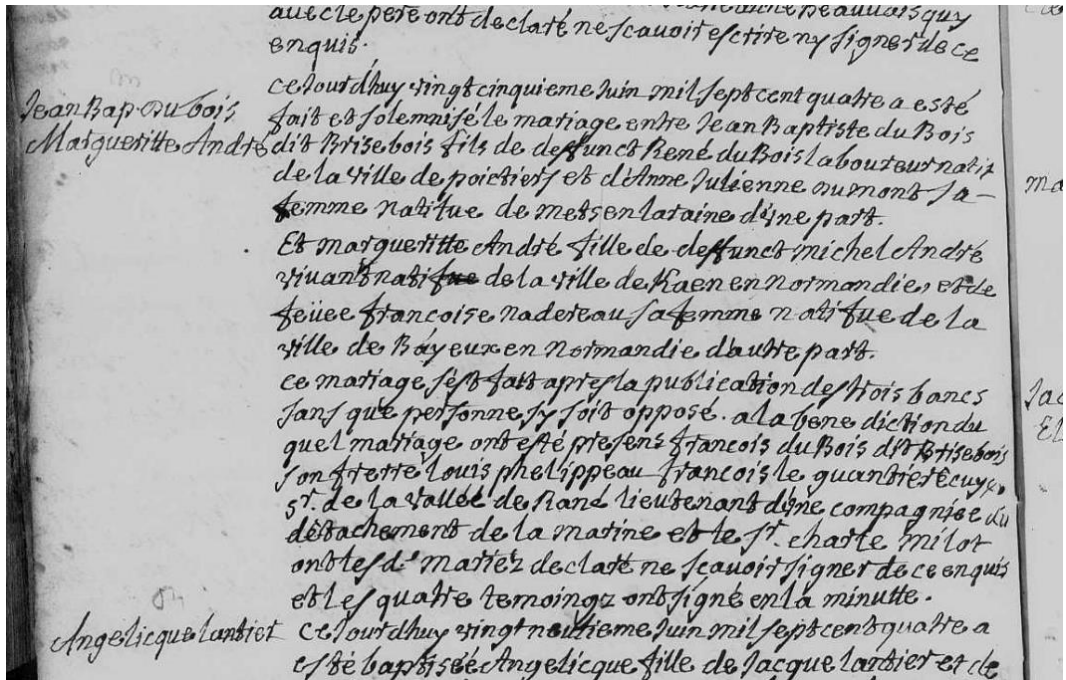 avec le pere ont declaré ne scavoir escrire ny signer de ce
enquis.
Jean Bap. du bois
Margueritte André
ce Jourdhuy vingt cinquieme Juin mil sept cent quatre a esté
fait et solemnisé le mariage entre Jean Baptiste du Bois
dit Brisebois fils de deffunct René du Bois laboureur natif
de la ville de poictiers et d'Anne Julienne numont sa
femme natifue de mets en laraine d'vne part.
Et margueritte André fille de deffunct michel André
vivant natifue de la ville de Kaen en normandie, et de
feüee francoise nadereau sa femme natifue de la
ville de Bayeux en Normandie d'autre part.
ce mariage s'est fait apres la publication des trois bancs
sans que personne sy soit opposé. a la bene diction du
quel mariage ont esté presens francois du Bois dit Brisebois
son frerre Louis phelippeau francois le quantier ecuyer
sr. de la vallée de Rané lieutenant d'vne compagniee du
detachement de la marine et le sr. charle milot
ont les ds mariéz declaré ne scavoir signer de ce enquis
et les quatre temoingz ont signé en la minutte.
Angelicque lantier
ce Jourdhuy vingt neufieme Juin mil sept cent quatre a
esté baptiseé Angelicque fille de Jacque lantier et de